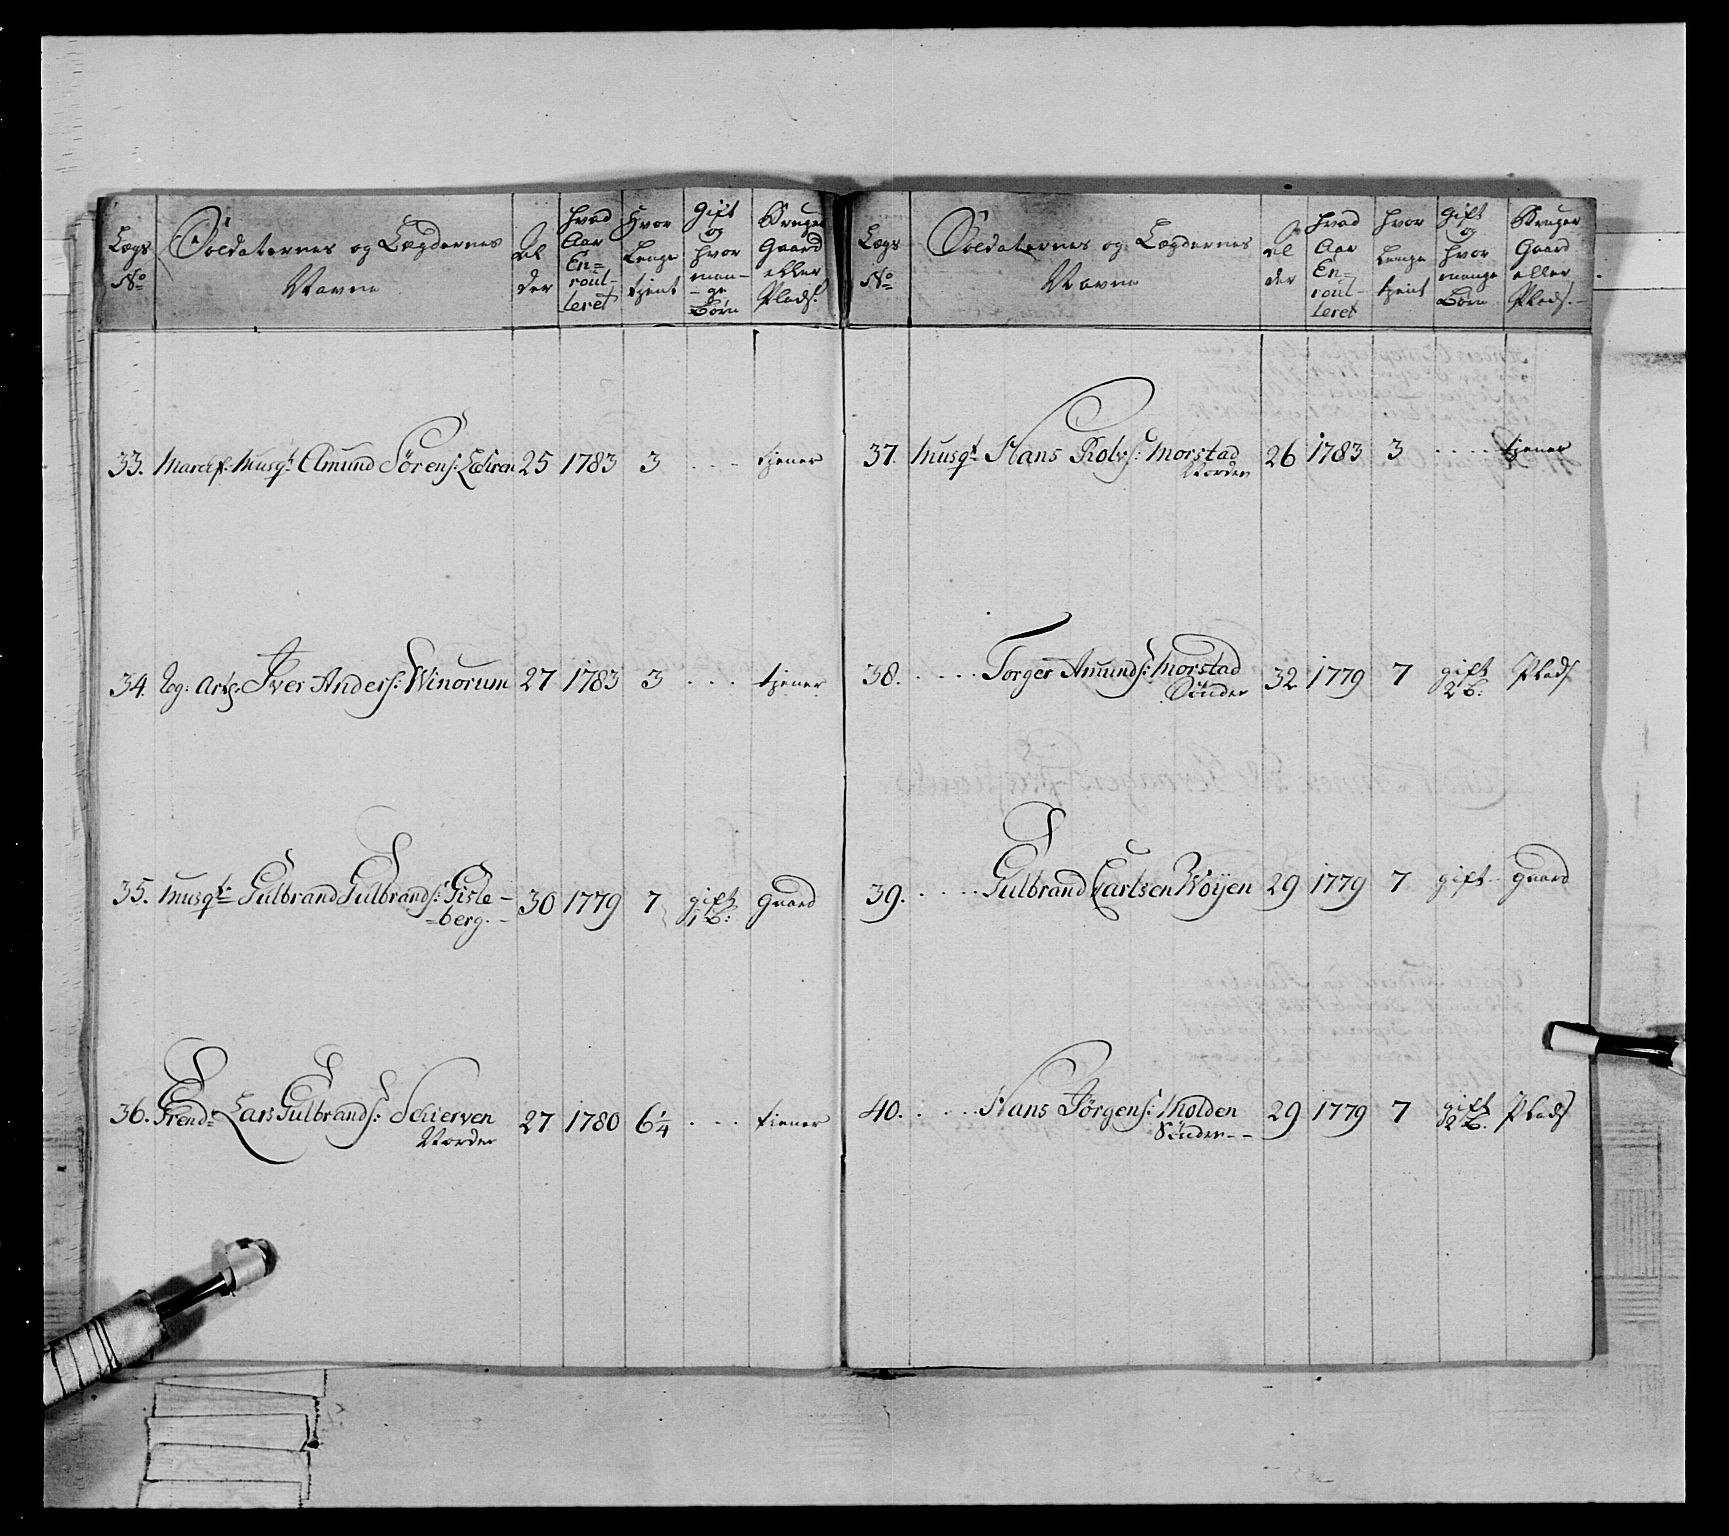 Lægs No
Soldaternes og Lægdernes Navne
Alder
Hvad Aar Enroulleret
Hvor Lenge tient
Gift og hvor mange Børn
Bruger Gaard eller Plads
33. Musqt Amund Sørens: 25 1783 3 . . . tiener
34. Reg: Art: Iver Anders: Winorum 27 1783 3 . . . tiener
35. Musqt: Gulbrand Gulbrands: Gisle-
-berg. 30 1779 7 gift 1 B: Gaard
36. Frend: Lars Gulbrands: Schierven
Nordre 27 1780 6¼ . . . tiener
Lægs No
Soldaternes og Lægdernes Navne
Alder
Hvad Aar Enroulleret
Hvor Lenge tient
Gift og hvor mange Børn
Bruger Gaard eller Plads.
37. Musqt Hans Rolvs: Morstad
Nordre 26 1783 3 . . . . tiener
38. . . . . Torger Amunds: Morstad
Sönder 32 1779 7 gift 2 B: Plads
39. . . . . Gulbrand Carlsen Woÿen 29 1779 7 gift Gaard
40. . . . . Hans Jörgens: Molden
Sönder 29 1779 7 gift 2 B. Plads